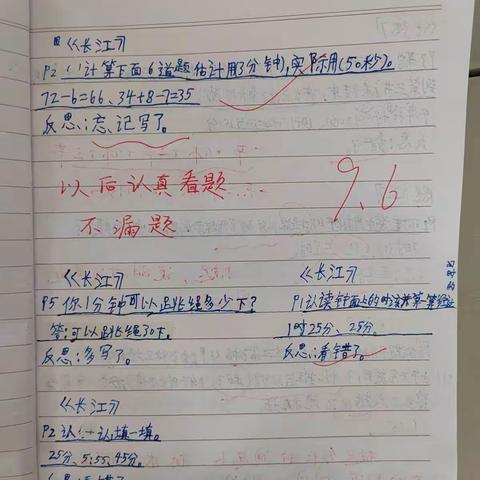 《长江》
P2 (1)计算下面6道题估计用3分钟,实际用(50秒)。
72-6=66、34+8-7=35
反思:忘记写了。
以后认真看题
不漏题
9.6
《长江》
P5你1分钟可以跳绳多少下?
答:可以跳绳70下。
反思:多写了。
《长江》
P1认读钟面上的时刻并算一算经过
时间的
1时25分、25分。
反思:看错了。
《长江》
P2认一认,填一填。
25分、5:55、45分。